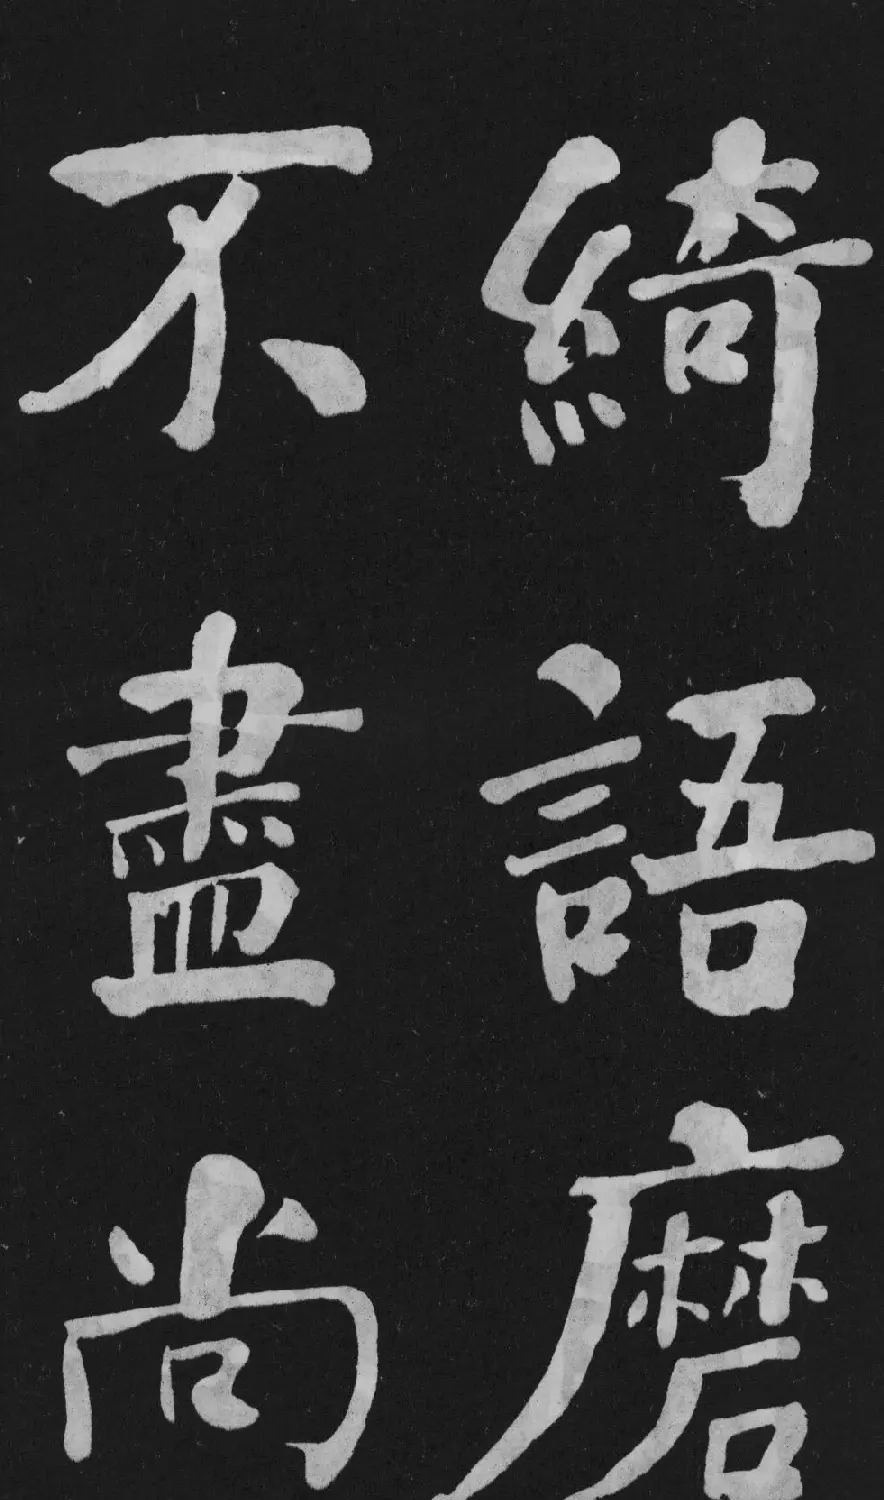 綺語磨
不盡尚